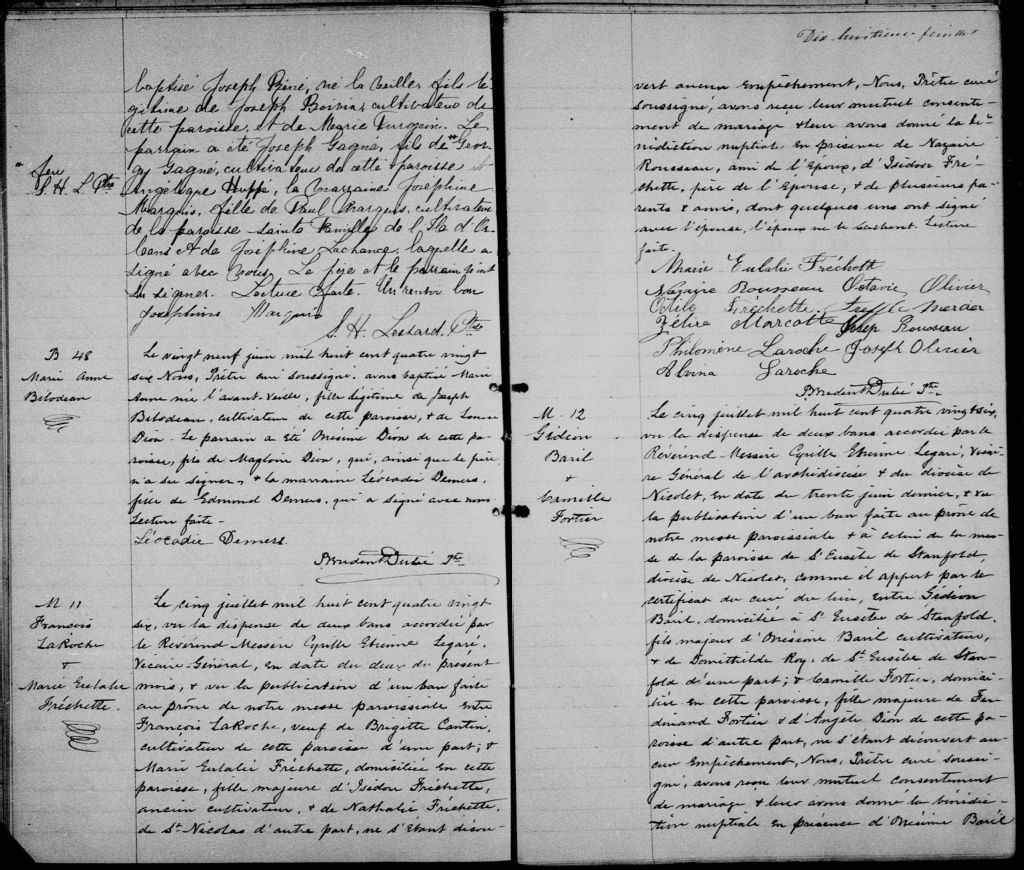 baptisé Joseph René, né la veille, fils lé-
gitime de Joseph Boivin, cultivateur de
cette paroisse, et de Marie Turgeon. Le
parrain a été Joseph Gagné, fils de " Geor-
gy Gagné, cultivateur de cette paroisse et
" feu
S. H. L. Ptre
Angélique Huppé, la marraine Joséphine
Marquis, fille de Paul Marquis, cultivateur
de la paroisse Sainte Famille de l'Ile d'Or-
léans et de Joséphine Lachance, laquelle a
signé avec nous. Le père et le parrain n'ont
su signer. Lecture faite. Un renvoi bon
Josephine Marquis
S. H. Ptre
B 48
Marie Anne
Bilodeau
Le vingt neuf juin mil huit cent quatre vingt
six Nous, Prêtre curé soussigné, avons baptisé Marie
Anne née l'avant-veille, fille légitime de Joseph
Bilodeau, cultivateur de cette paroisse, & de Louise
Dion. Le parrain a été Onésime Dion de cette pa-
roisse, fils de Magloire Dion, qui, ainsi que le père
n'a su signer, & la marraine Léocadie Demers,
fille de Edmond Demers, qui a signé avec nous
Lecture faite.
Léocadie Demers
Prudent Dubé Ptre
M 11
François
LaRoche
&
Marie Eulalie
Fréchette.
Le cinq juillet mil huit cent quatre vingt
six, vu la dispense de deux bans accordée par
le Révérend Messire Cyrille Etienne Legaré,
Vicaire Général, en date du deux du présent
mois, & vu la publication d'un ban faite
au prône de notre messe paroissiale entre
François LaRoche, veuf de Brigitte Cantin,
cultivateur de cette paroisse d'une part; &
Marie Eulalie Fréchette, domiciliée en cette
paroisse, fille majeure d'Isidore Fréchette,
ancien cultivateur, & de Nathalie Fréchette,
de St. Nicolas d'autre part, ne s'étant décou-
Dix huitième feuillet
vert aucun empêchement, Nous, Prêtre curé
soussigné, avons reçu leur mutuel consente-
ment de mariage & leur avons donné la bé-
nédiction nuptiale en présence de Nazaire
Rousseau, ami de l'Epoux, d'Isidore Fré-
chette, père de l'Epouse, & de plusieurs pa-
rents & amis, dont quelques uns ont signé
avec l'épouse, l'époux ne le sachant. Lecture
faite.
Marie Eulalie Fréchette
Nazaire Rousseau Octavie Olivier
Odile Fréchette Treffle Mercier
Zélire Marcotte Josep Rousseau
Philomène Laroche Joseph Olivier
Alvina Laroche
Prudent Dubé Ptre.
M. 12
Gédéon
Baril
&
Camille
Fortier
Le cinq juillet mil huit cent quatre vingt six,
vu la dispense de deux bans accordée par le
Révérend Messire Cyrille Etienne Legaré, Vicaire
Général de l'archidiocèse & du diocèse de
Nicolet, en date de trente juin dernier, & vu
la publication d'un ban faite au prône de
notre messe paroissiale & à celui de la mes-
se de la paroisse de St Eusèbe de Stanfold,
diocèse de Nicolet, comme il appert par le
certificat du curé du lieu, entre Gédéon
Baril, domicilié à St Eusèbe de Stanfold,
fils majeur d'Onésime Baril cultivateur,
& de Domithilde Roy, de St Eusèbe de Stan-
fold d'une part; & Camille Fortier, domici-
liée en cette paroisse, fille majeure de Fer-
dinand Fortier & d'Angèle Dion de cette pa-
roisse d'autre part, ne s'étant découvert au-
cun Empêchement, Nous, Prêtre curé soussi-
gné, avons reçu leur mutuel consentement
de mariage & leur avons donné la bénédic-
tion nuptiale en présence d'Onésime Baril